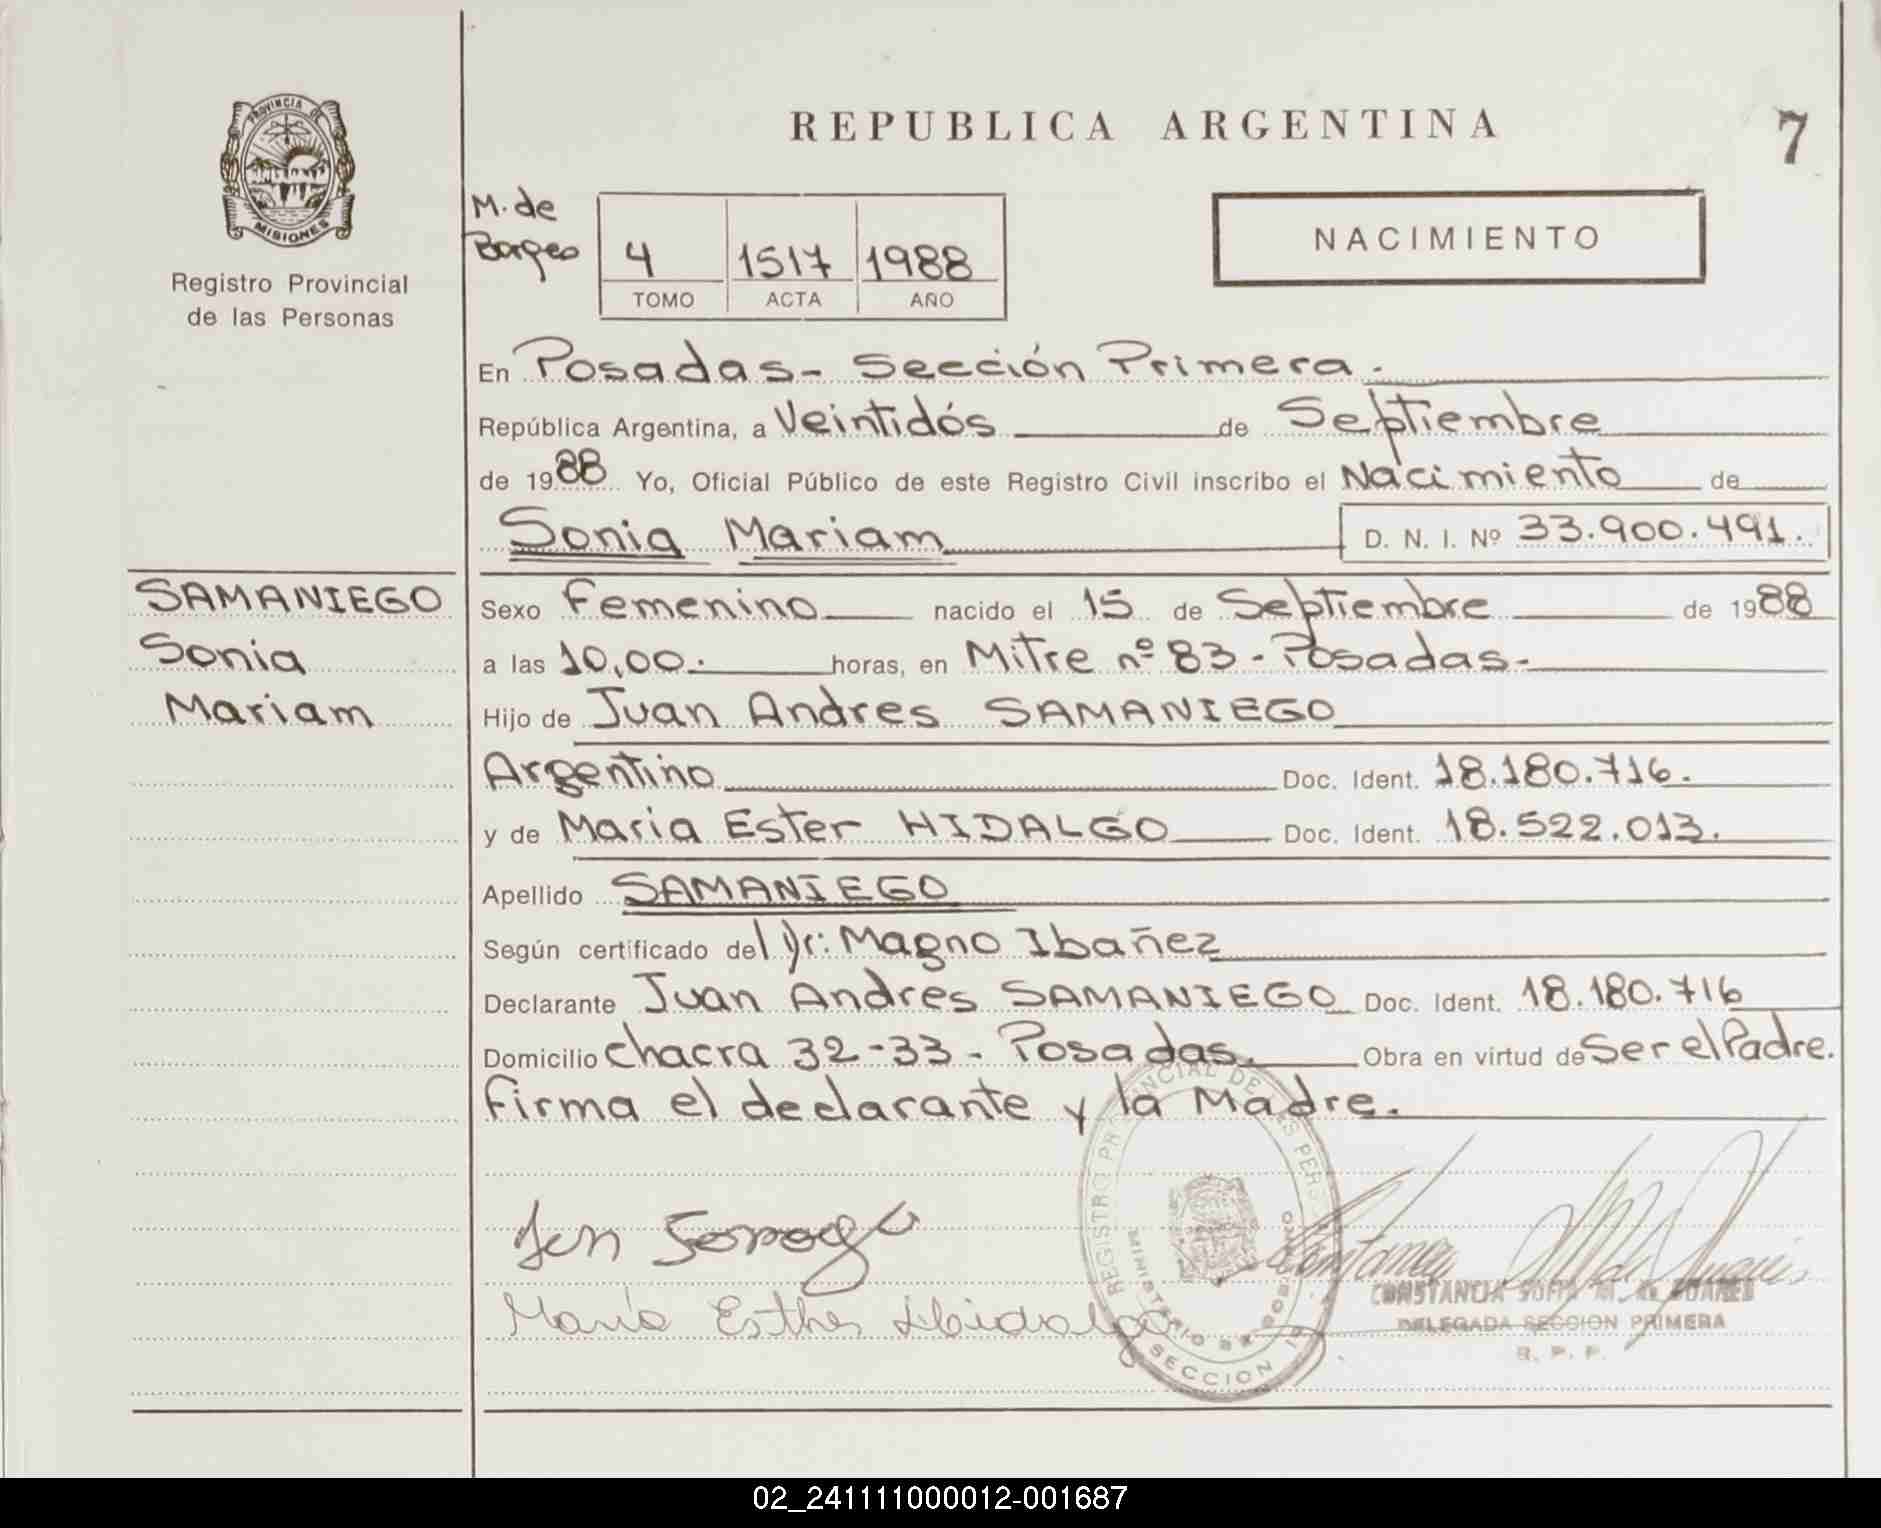 PROVINCIA DE
MISIONES
Registro Provincial
de las Personas
REPUBLICA ARGENTINA
7
M. de
Borges
4 1517 1988
TOMO ACTA AÑO
NACIMIENTO
En Posadas - Sección Primera.
República Argentina, a Veintidós de Septiembre
de 1988 Yo, Oficial Público de este Registro Civil inscribo el Nacimiento de
Sonia Mariam D. N. I. Nº 33.900.491.
SAMANIEGO
Sonia
Mariam
Sexo Femenino nacido el 15 de Septiembre de 1988
a las 10,00. horas, en Mitre nº 83 - Posadas -
Hijo de Juan Andres SAMANIEGO
Argentino Doc. Ident. 18.180.716.
y de Maria Ester HIDALGO Doc. Ident. 18.522.013.
Apellido SAMANIEGO
Según certificado del Dr: Magno Ibañez
Declarante Juan Andres SAMANIEGO Doc. Ident. 18.180.716
Domicilio chacra 32-33 - Posadas. Obra en virtud de Ser el Padre.
Firma el declarante y la Madre.
REGISTRO PROVINCIAL DE LAS PERS
MINISTERIO DE GOBIERNO
SECCION 1a
María Esther
CONSTANCIA SOFIA M. de SUARES
DELEGADA SECCION PRIMERA
R. P. P.
02_241111000012-001687